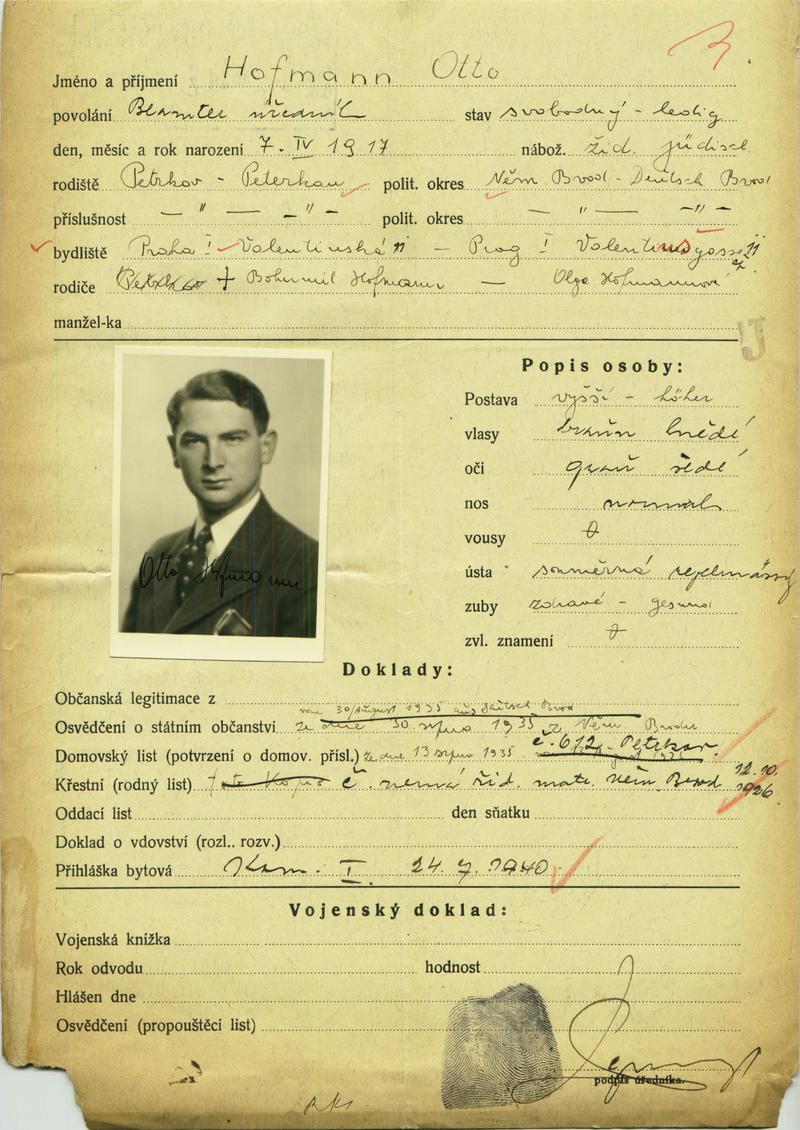 Jméno a příjmení Hofmann Otto
povolání Beamter úředník stav svobodný - ledig
den, měsíc a rok narození 7. IV 1917 nábož. žid. jüdisch
rodiště Petrkov - Peterkau polit. okres Něm. Brod - Deutsch Brod
příslušnost — " — — " — polit. okres — " — — " —
bydliště Praha I Valentinská 11 — Prag I Valentinsgasse 11
rodiče + Bohumil Hofmann — Olga Hofmannová
manžel-ka
Popis osoby:
Postava vyšší - höher
vlasy braun hnědé
oči grau šedé
nos normal
vousy
ústa souměrná regelmässig
zuby zdravé - gesund
zvl. znamení
Otto Hofmann
Doklady:
Občanská legitimace z
vom 30/August 1935 aus Deutsch Brod
Osvědčení o státním občanství ze dne 30. srpna 1935 z Něm. Brodu
Domovský list (potvrzení o domov. přísl.) ze dne 13 srpna 1935 č. 612 - Petrkov.
Křestní (rodný list) č. nemá žid. matr. Něm. Brod 12.10. 1926
Oddací list den sňatku
Doklad o vdovství (rozl.. rozv.)
Přihláška bytová Kom. I 24. 7. 1940
Vojenský doklad:
Vojenská knížka
Rok odvodu hodnost
Hlášen dne
Osvědčení (propouštěcí list)
podpis úředníka.